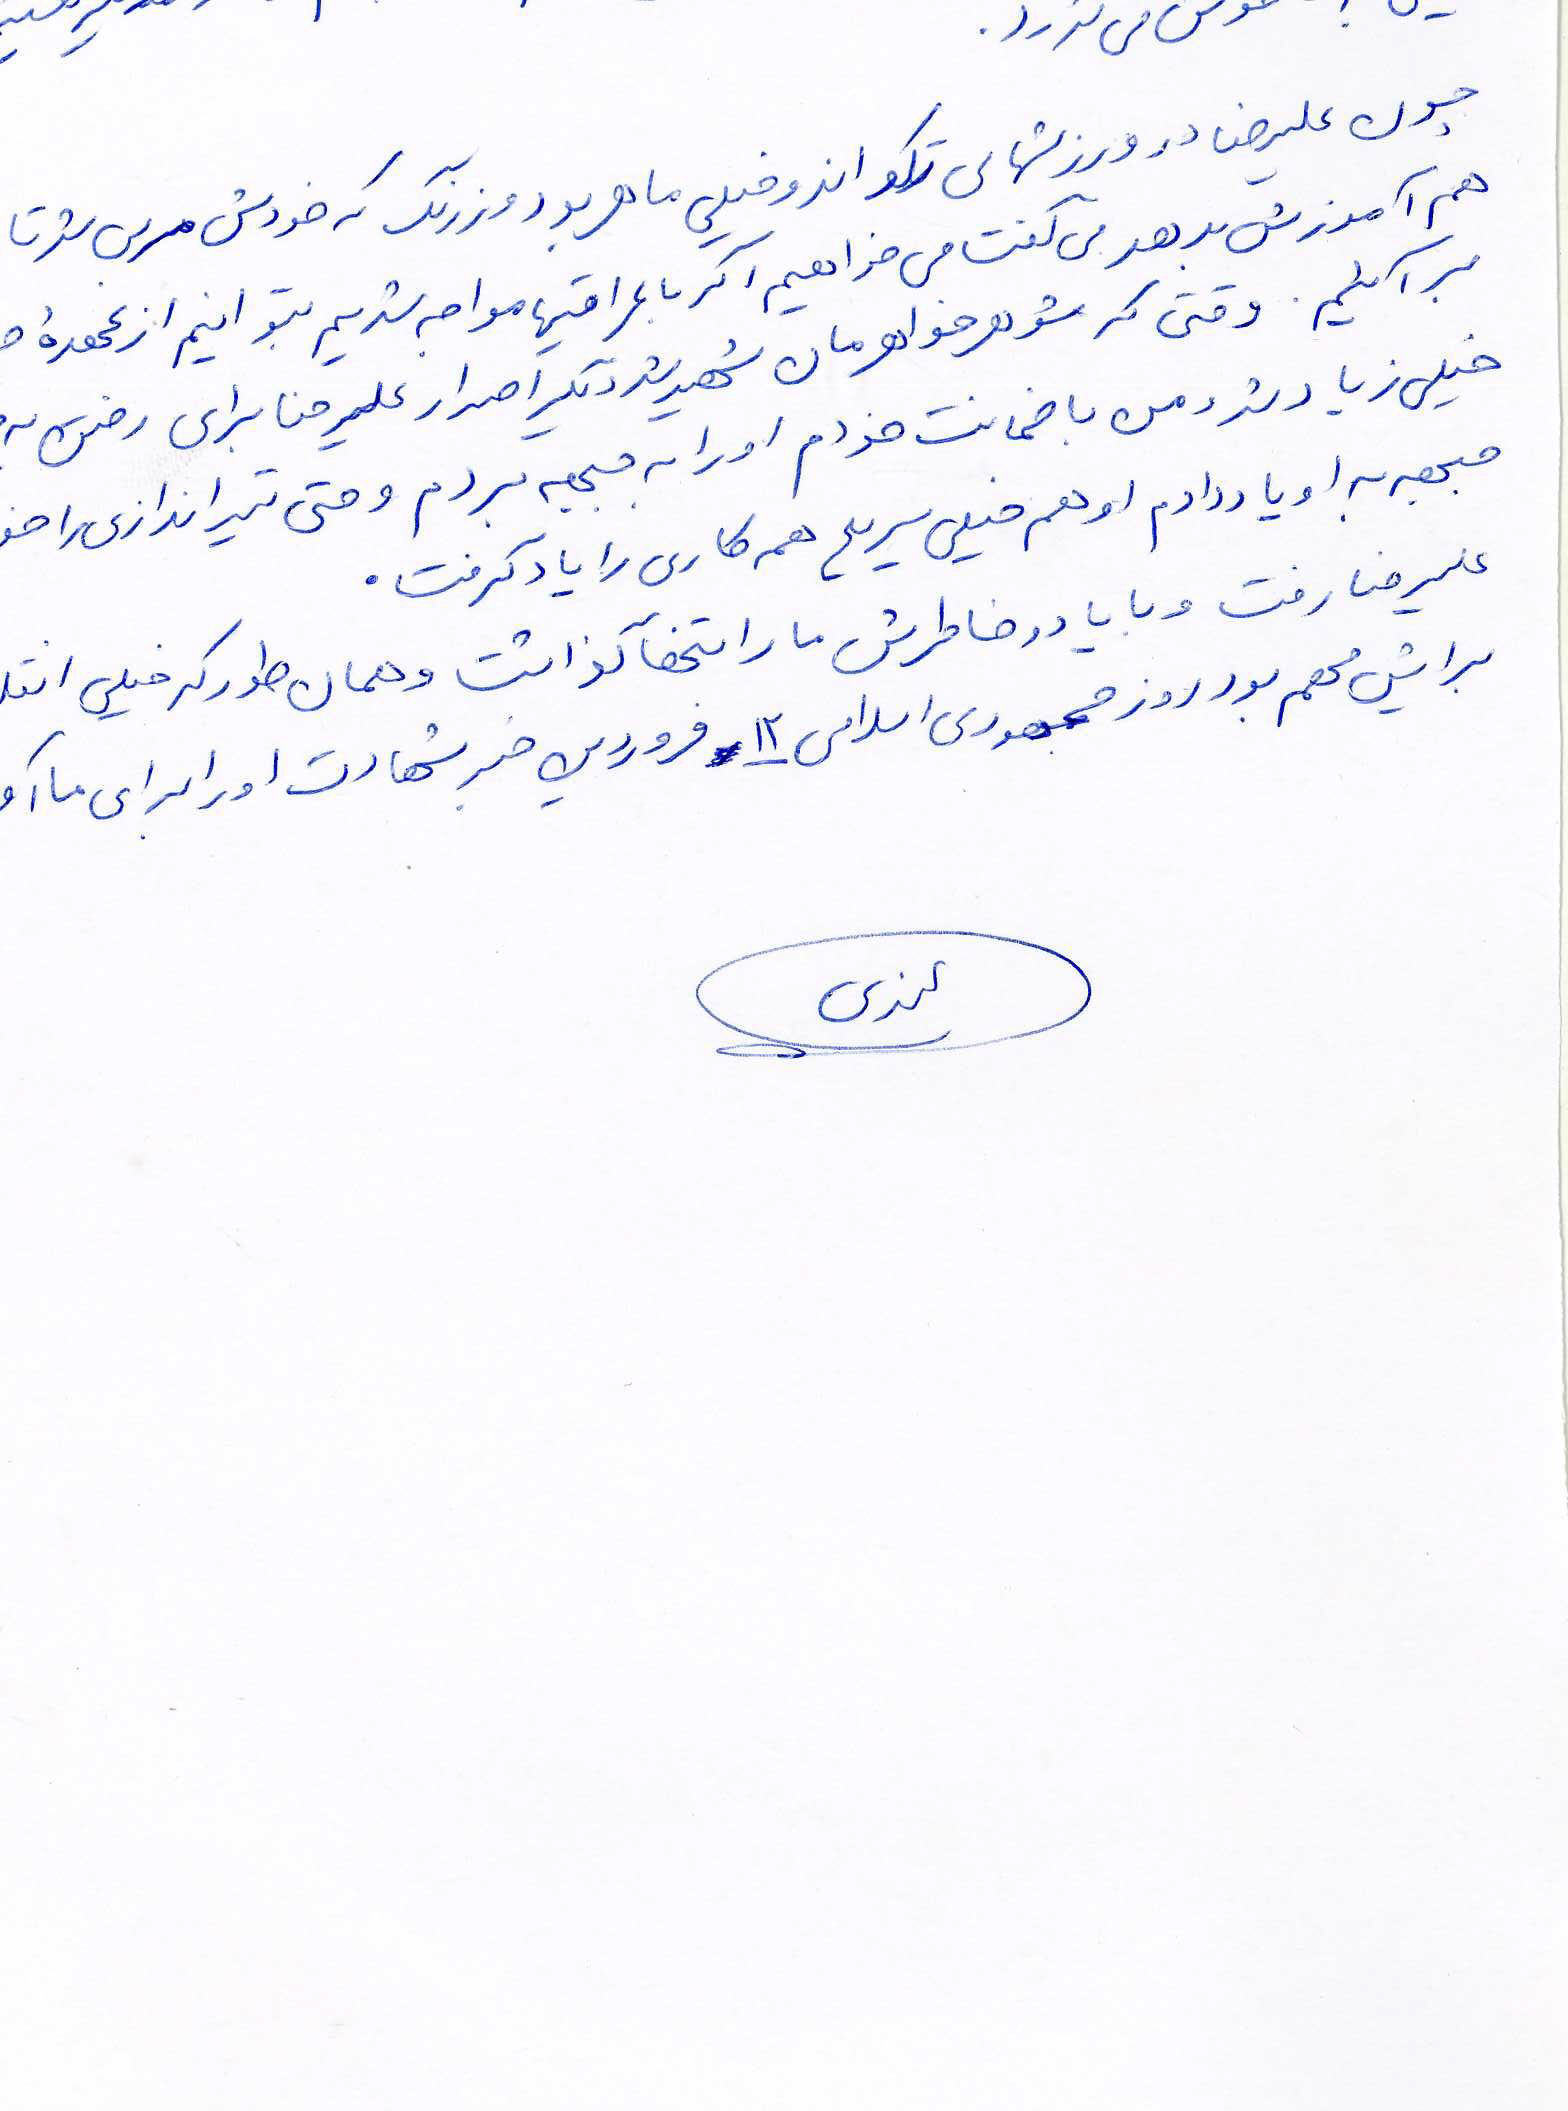 می گذرد.
چون علیرضا در ورزشهای تکواندو خیلی ماهر بود و زرنگ که خودش مربی شد تا
هم آموزش بدهد می گفت می خواهیم اگر با عراقیها مواجه شدیم بتوانیم از عهدهٔ
برآئیم. وقتی که شوهر خواهرمان شهید شد دیگر اصرار علیرضا برای رفتن به
خیلی زیاد شد، من با ضمانت خودم او را به جبهه بردم و حتی تیراندازی را
جبهه به او یاد دادم او هم خیلی سریع همه کاری را یاد گرفت.
علیرضا رفت و با یاد و خاطرش ما را تنها گذاشت و همان طور که خیلی
برایش مهم بود روز جمهوری اسلامی ۱۲ فروردین خبر شهادت او را برای ما